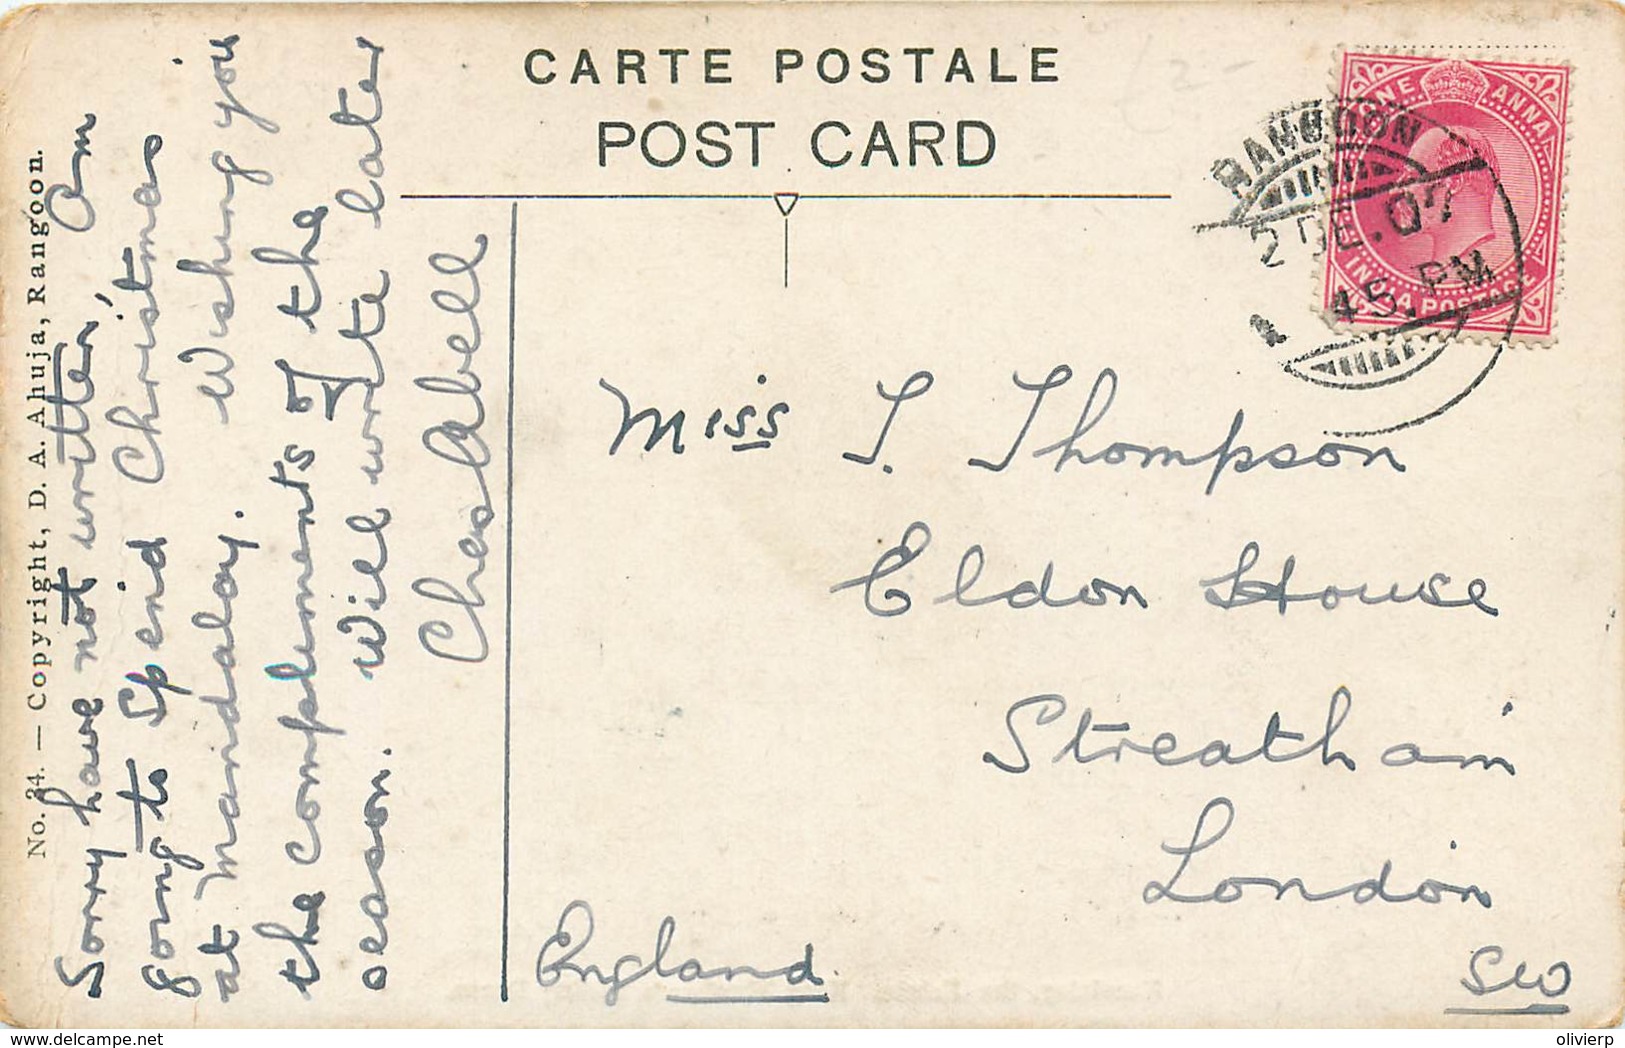 CARTE POSTALE
POST CARD
No. 34. — Copyright, D. A. Ahuja, Rangoon.
Sorry have not written, Am
going to spend Christmas
at Mandalay. Wishing you
the compliments of the
season. Will write later
Chas Abell
ONE ANNA
INDIA POSTAGE
RANGOON
2 DE. 07
45. PM
Miss T. Thompson
Eldon House
Streatham
London
England
SW
delcampe.net
olivierp